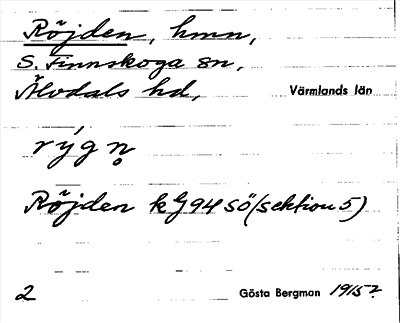 Röjden, hmn,
S. Finnskoga sn,
Älvdals hd, Värmlands län
rýgn̥
Röjden kG94 sö (sektion 5)
2 Gösta Bergman 1915?